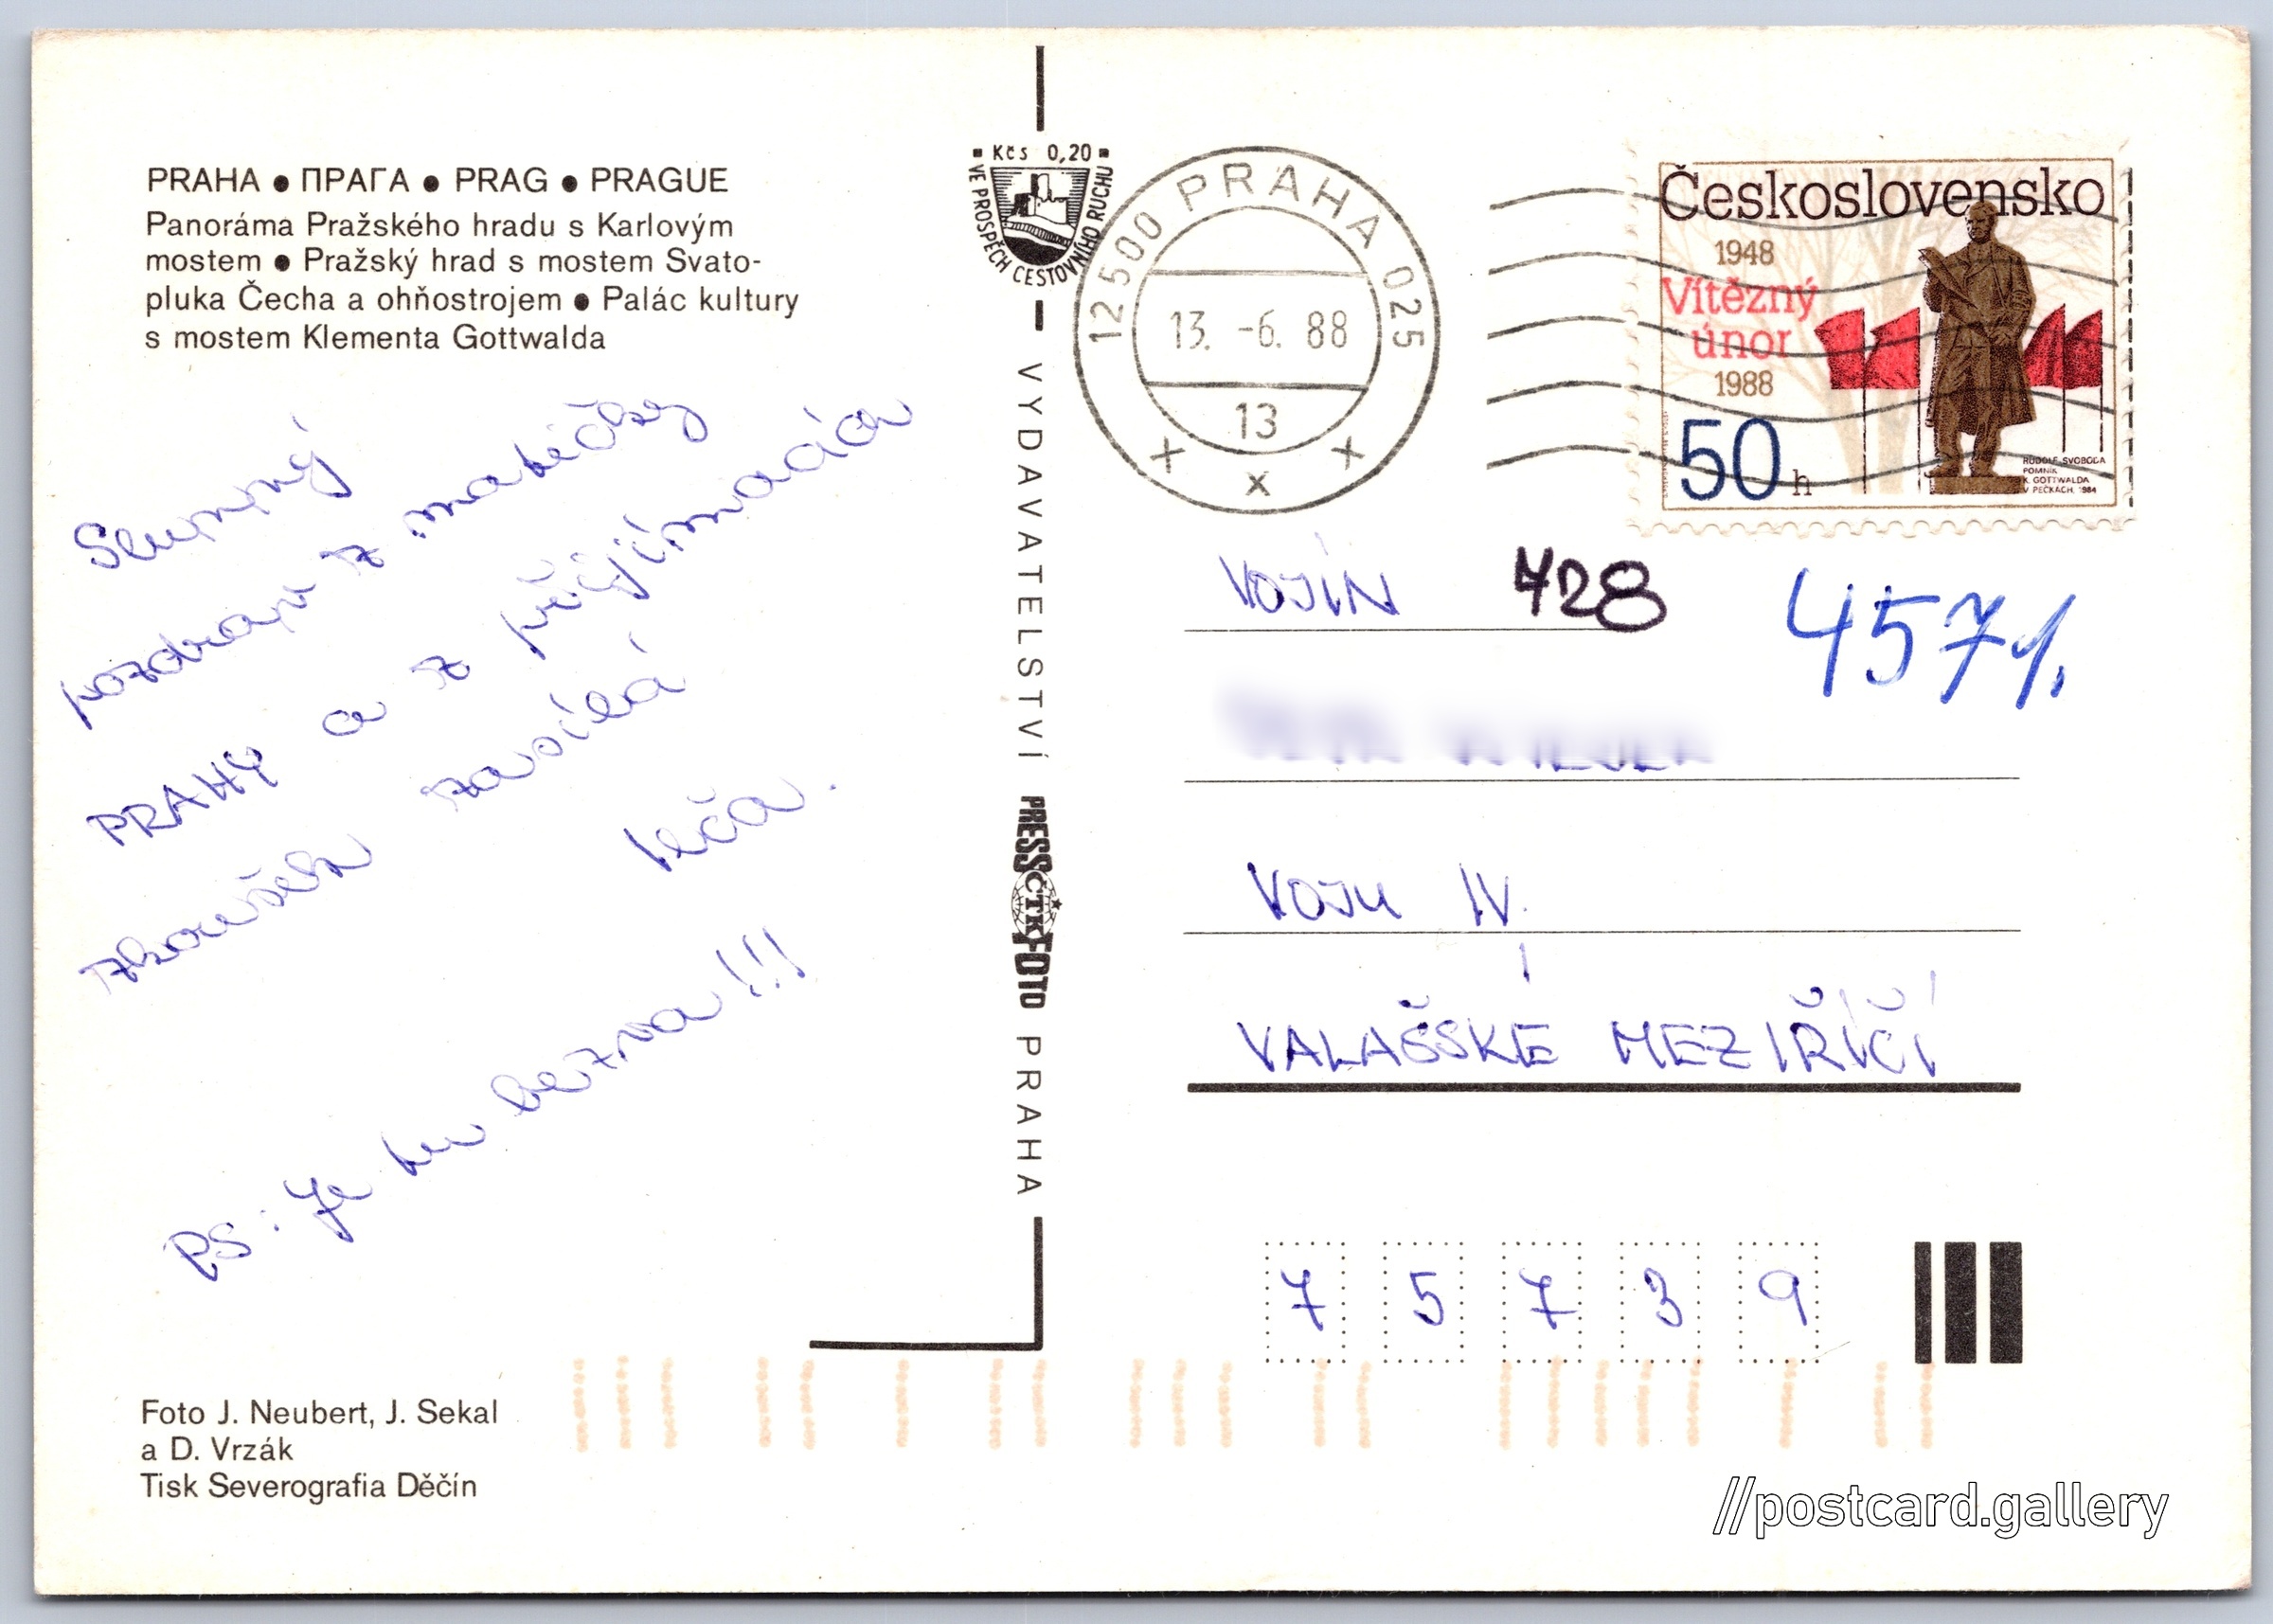 PRAHA • ПРАГА • PRAG • PRAGUE
Panoráma Pražského hradu s Karlovým
mostem • Pražský hrad s mostem Svato-
pluka Čecha a ohňostrojem • Palác kultury
s mostem Klementa Gottwalda
Slunný
pozdrav z matičky
PRAHY a z přijímacích
zkoušek zasílá
Péťa.
PS: Je to bezva!!!
Foto J. Neubert, J. Sekal
a D. Vrzák
Tisk Severografia Děčín
Kčs 0,20
VE PROSPĚCH CESTOVNÍHO RUCHU
VYDAVATELSTVÍ PRESSFOTO PRAHA
ČTK
12500 PRAHA 025
13. -6. 88
13
x x x
Československo
1948
Vítězný
únor
1988
50 h
RUDOLF SVOBODA
POMNÍK
K. GOTTWALDA
V PEČKÁCH, 1984
VOJÍN 728
457/.
VOJU IV.
VALAŠSKÉ MEZIŘÍČÍ
7 5 7 3 9
//postcard.gallery